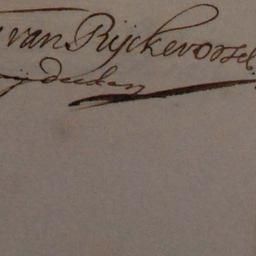 van Rijckevorsel
deken